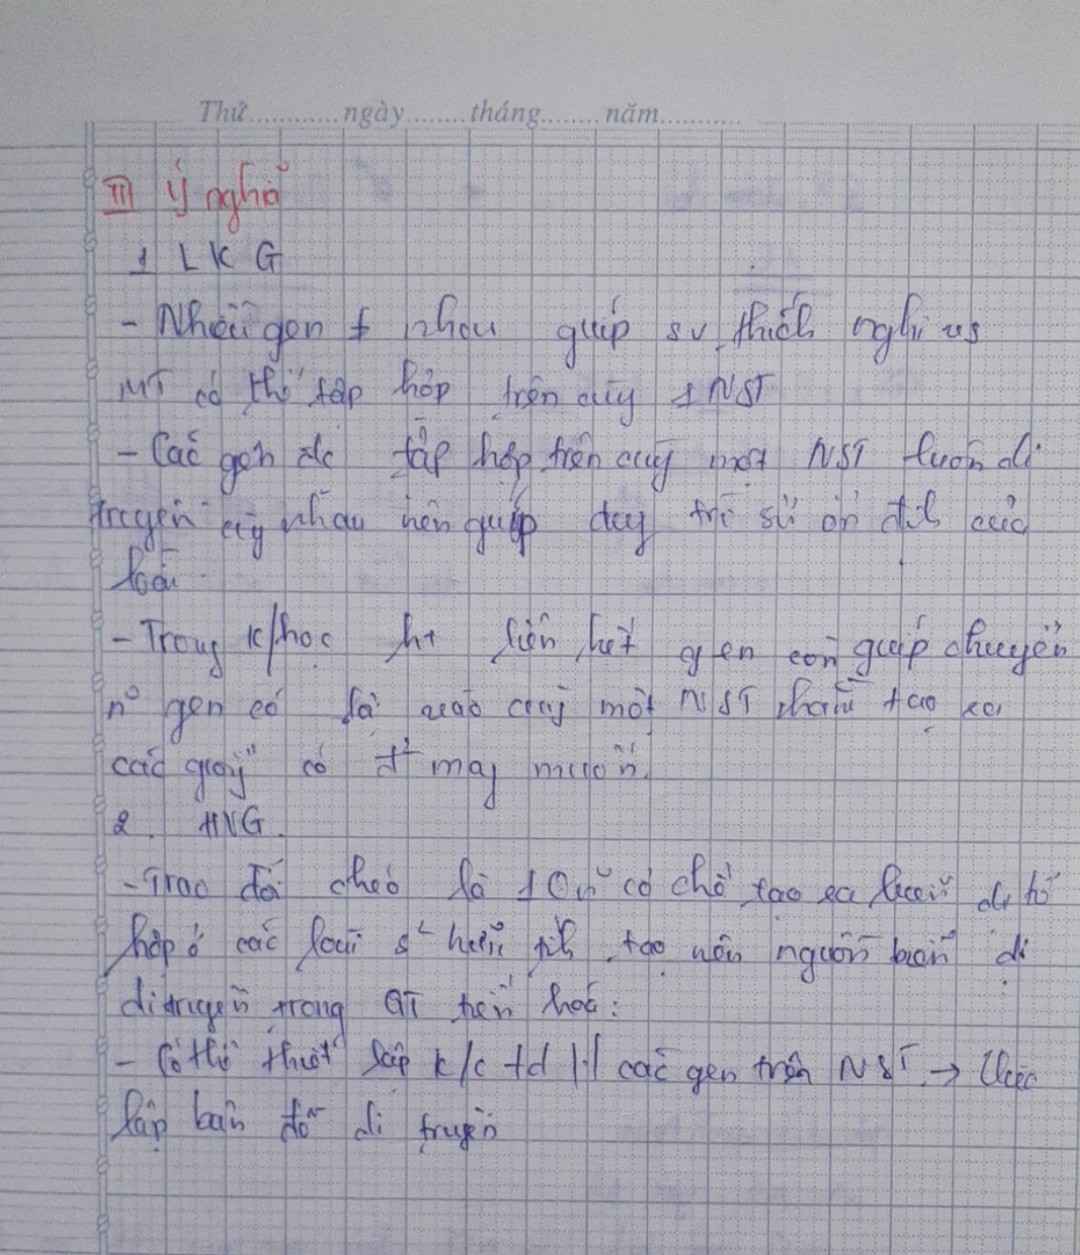 Thứ............ngày........tháng........năm...........
III Ý nghĩa
1 L K G
- Nhiều gen ≠ nhau giúp sự thích nghi vs
MT có thể tập hợp trên cùng 1 NST
- Các gen đc tập hợp trên cùng một NST luôn di
truyền cùng nhau nên giúp duy trì sự ổn định của
loài
- Trong k/học liên kết gen còn giúp chuyển
n~ gen có lợi vào cùng một NST nhằm tạo ra
các giống có đ² mong muốn.
2. HVG.
- Trao đổi chéo là 1 cơ chế tạo ra biến dị tổ
hợp ở các loài s² hữu tính tạo nên nguồn biến dị
di truyền trong QT tiến hoá:
- Có thể thiết lập k/c tđ các gen trên NST →
lập bản đồ di truyền